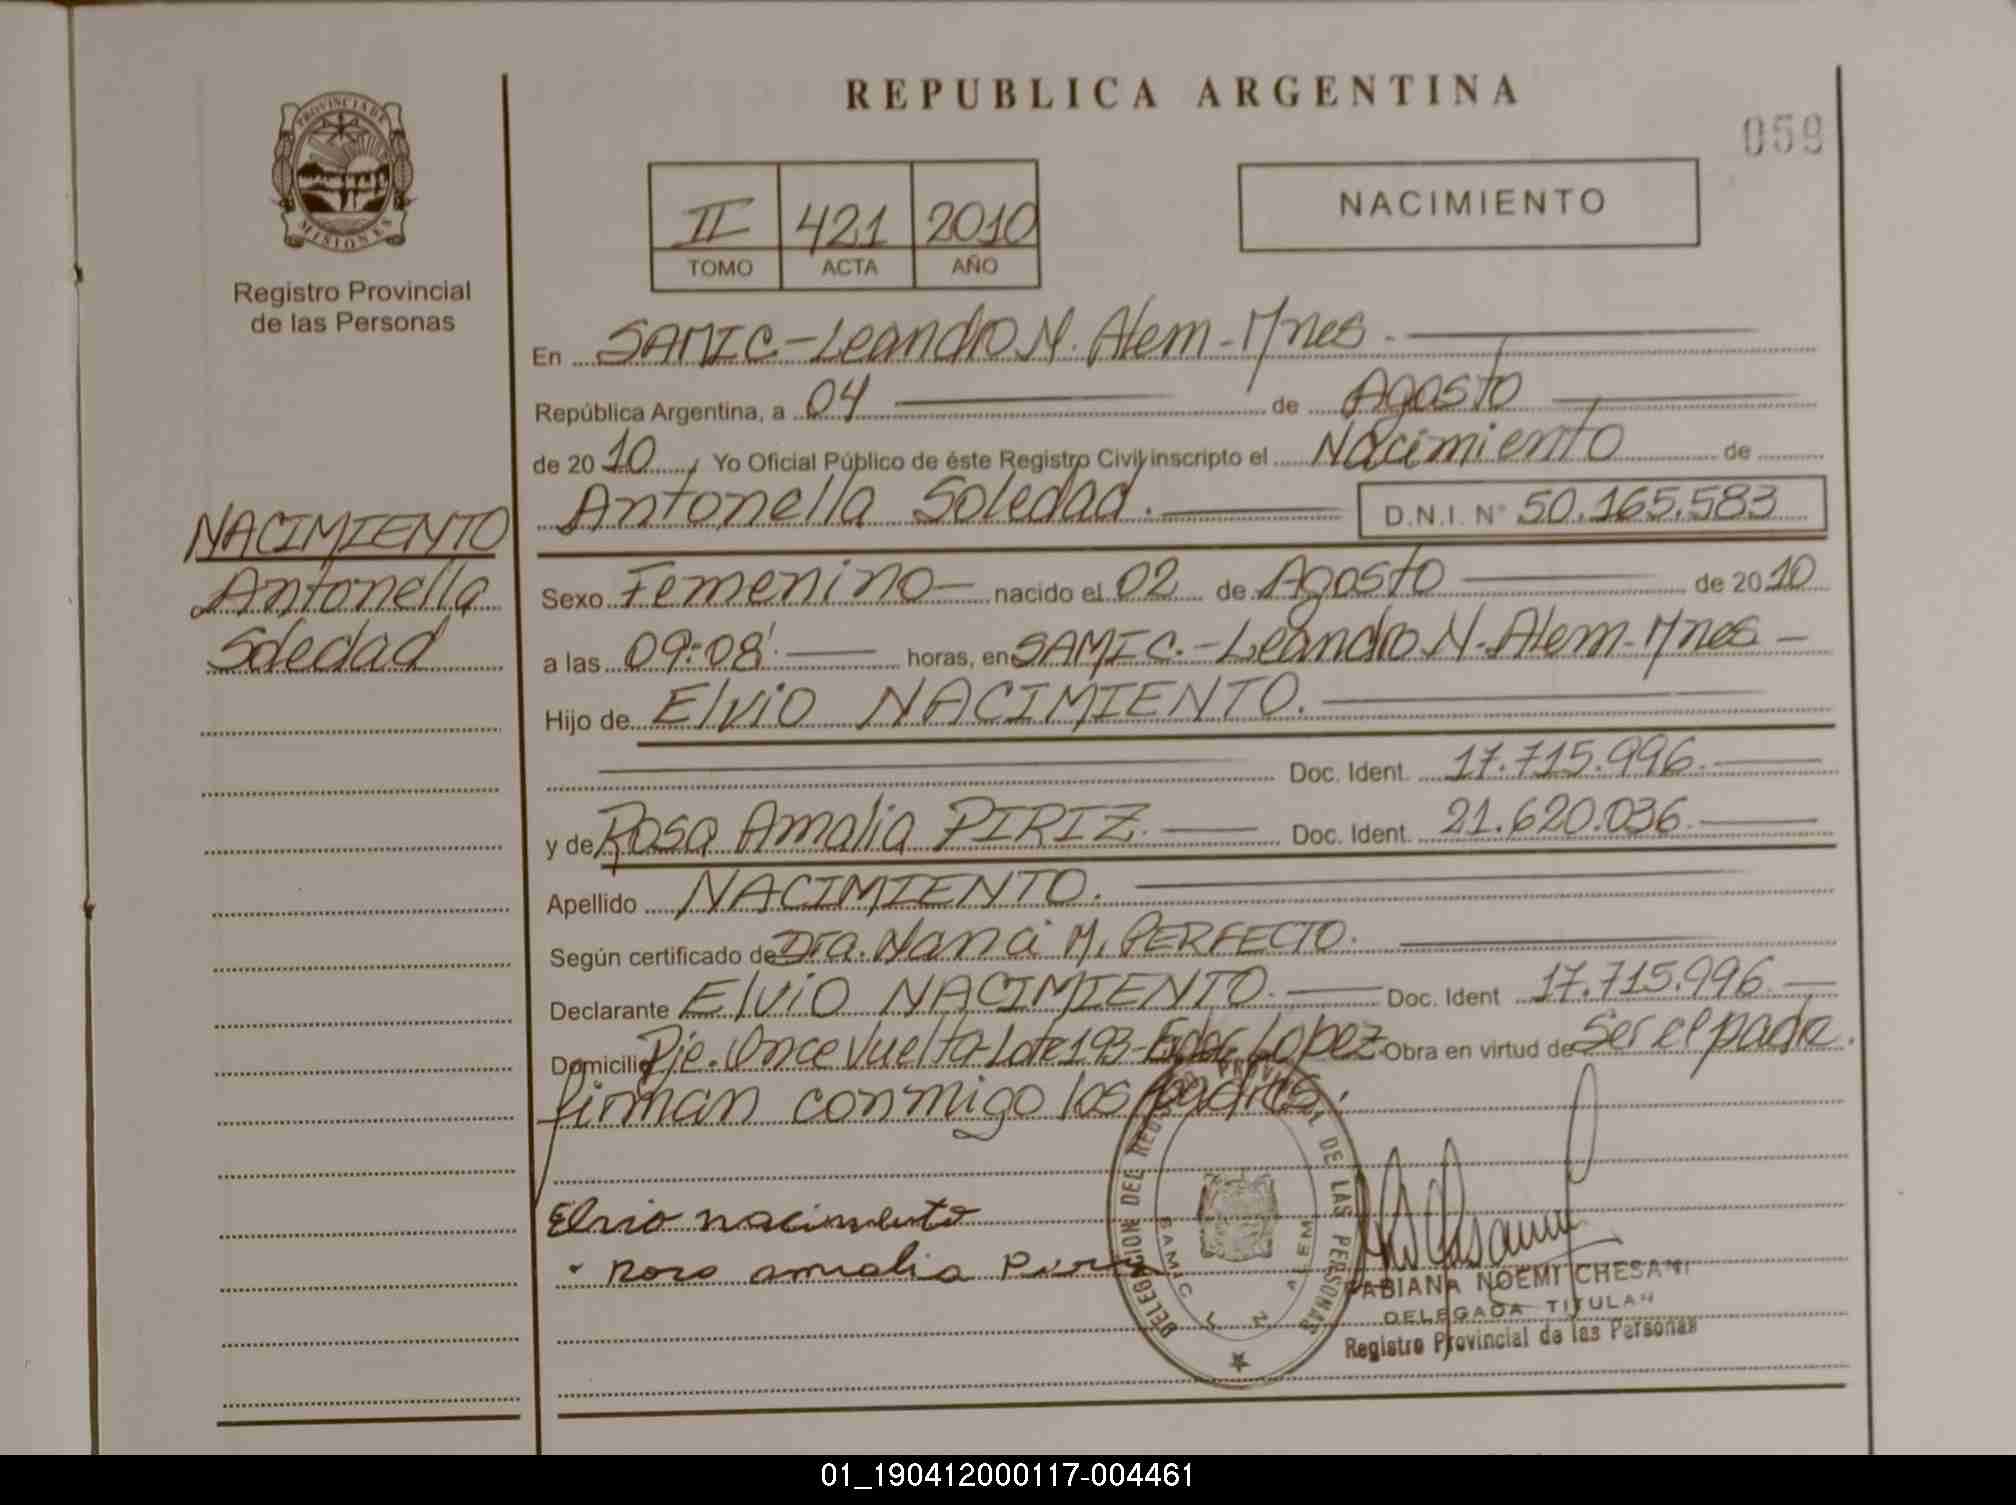 REPUBLICA ARGENTINA
059
PROVINCIA DE
MISIONES
Registro Provincial
de las Personas
II 421 2010
TOMO ACTA AÑO
NACIMIENTO
En SAMIC-Leandro N. Alem-Mnes.
República Argentina, a 04 de Agosto
de 2010, Yo Oficial Público de éste Registro Civil inscripto el Nacimiento de
Antonella Soledad. D.N.I. Nº 50.165.583
NACIMIENTO
Antonella
Soledad
Sexo Femenino nacido el 02 de Agosto de 2010
a las 09:08' horas, en SAMIC.-Leandro N. Alem-Mnes
Hijo de Elvio NACIMIENTO.
Doc. Ident. 17.715.996.
y de Rosa Amalia PIRIZ. Doc. Ident. 21.620.036.
Apellido NACIMIENTO.
Según certificado de Dra. Nanci M. PERFECTO.
Declarante Elvio NACIMIENTO. Doc. Ident 17.715.996.
Domicilio Pje. Once Vuelta-Lote 193- Lopez. Obra en virtud de Ser el padre.
firman conmigo los padres.
Elvio nacimiento
Rosa amalia Piriz
DELEGACION DEL REG PROVINCIAL DE LAS PERSONAS
SAMIC L N ALEM
FABIANA NOEMI CHESANI
DELEGADA TITULAR
Registro Provincial de las Personas
01_190412000117-004461